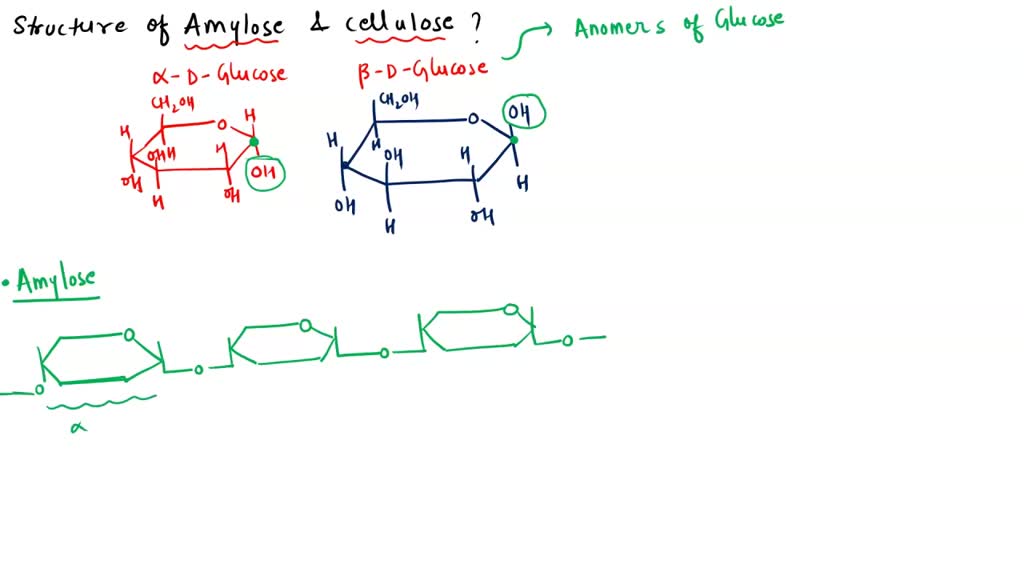 Structure of Amylose & cellulose ?
Anomers of Glucose
α-D-Glucose
β-D-Glucose
CH2OH
H
O
H
OH
H
H
OH
OH
H
OH
CH2OH
O
OH
H
H
OH
H
H
OH
OH
H
• Amylose
O
O
O
O
O
O
O
α